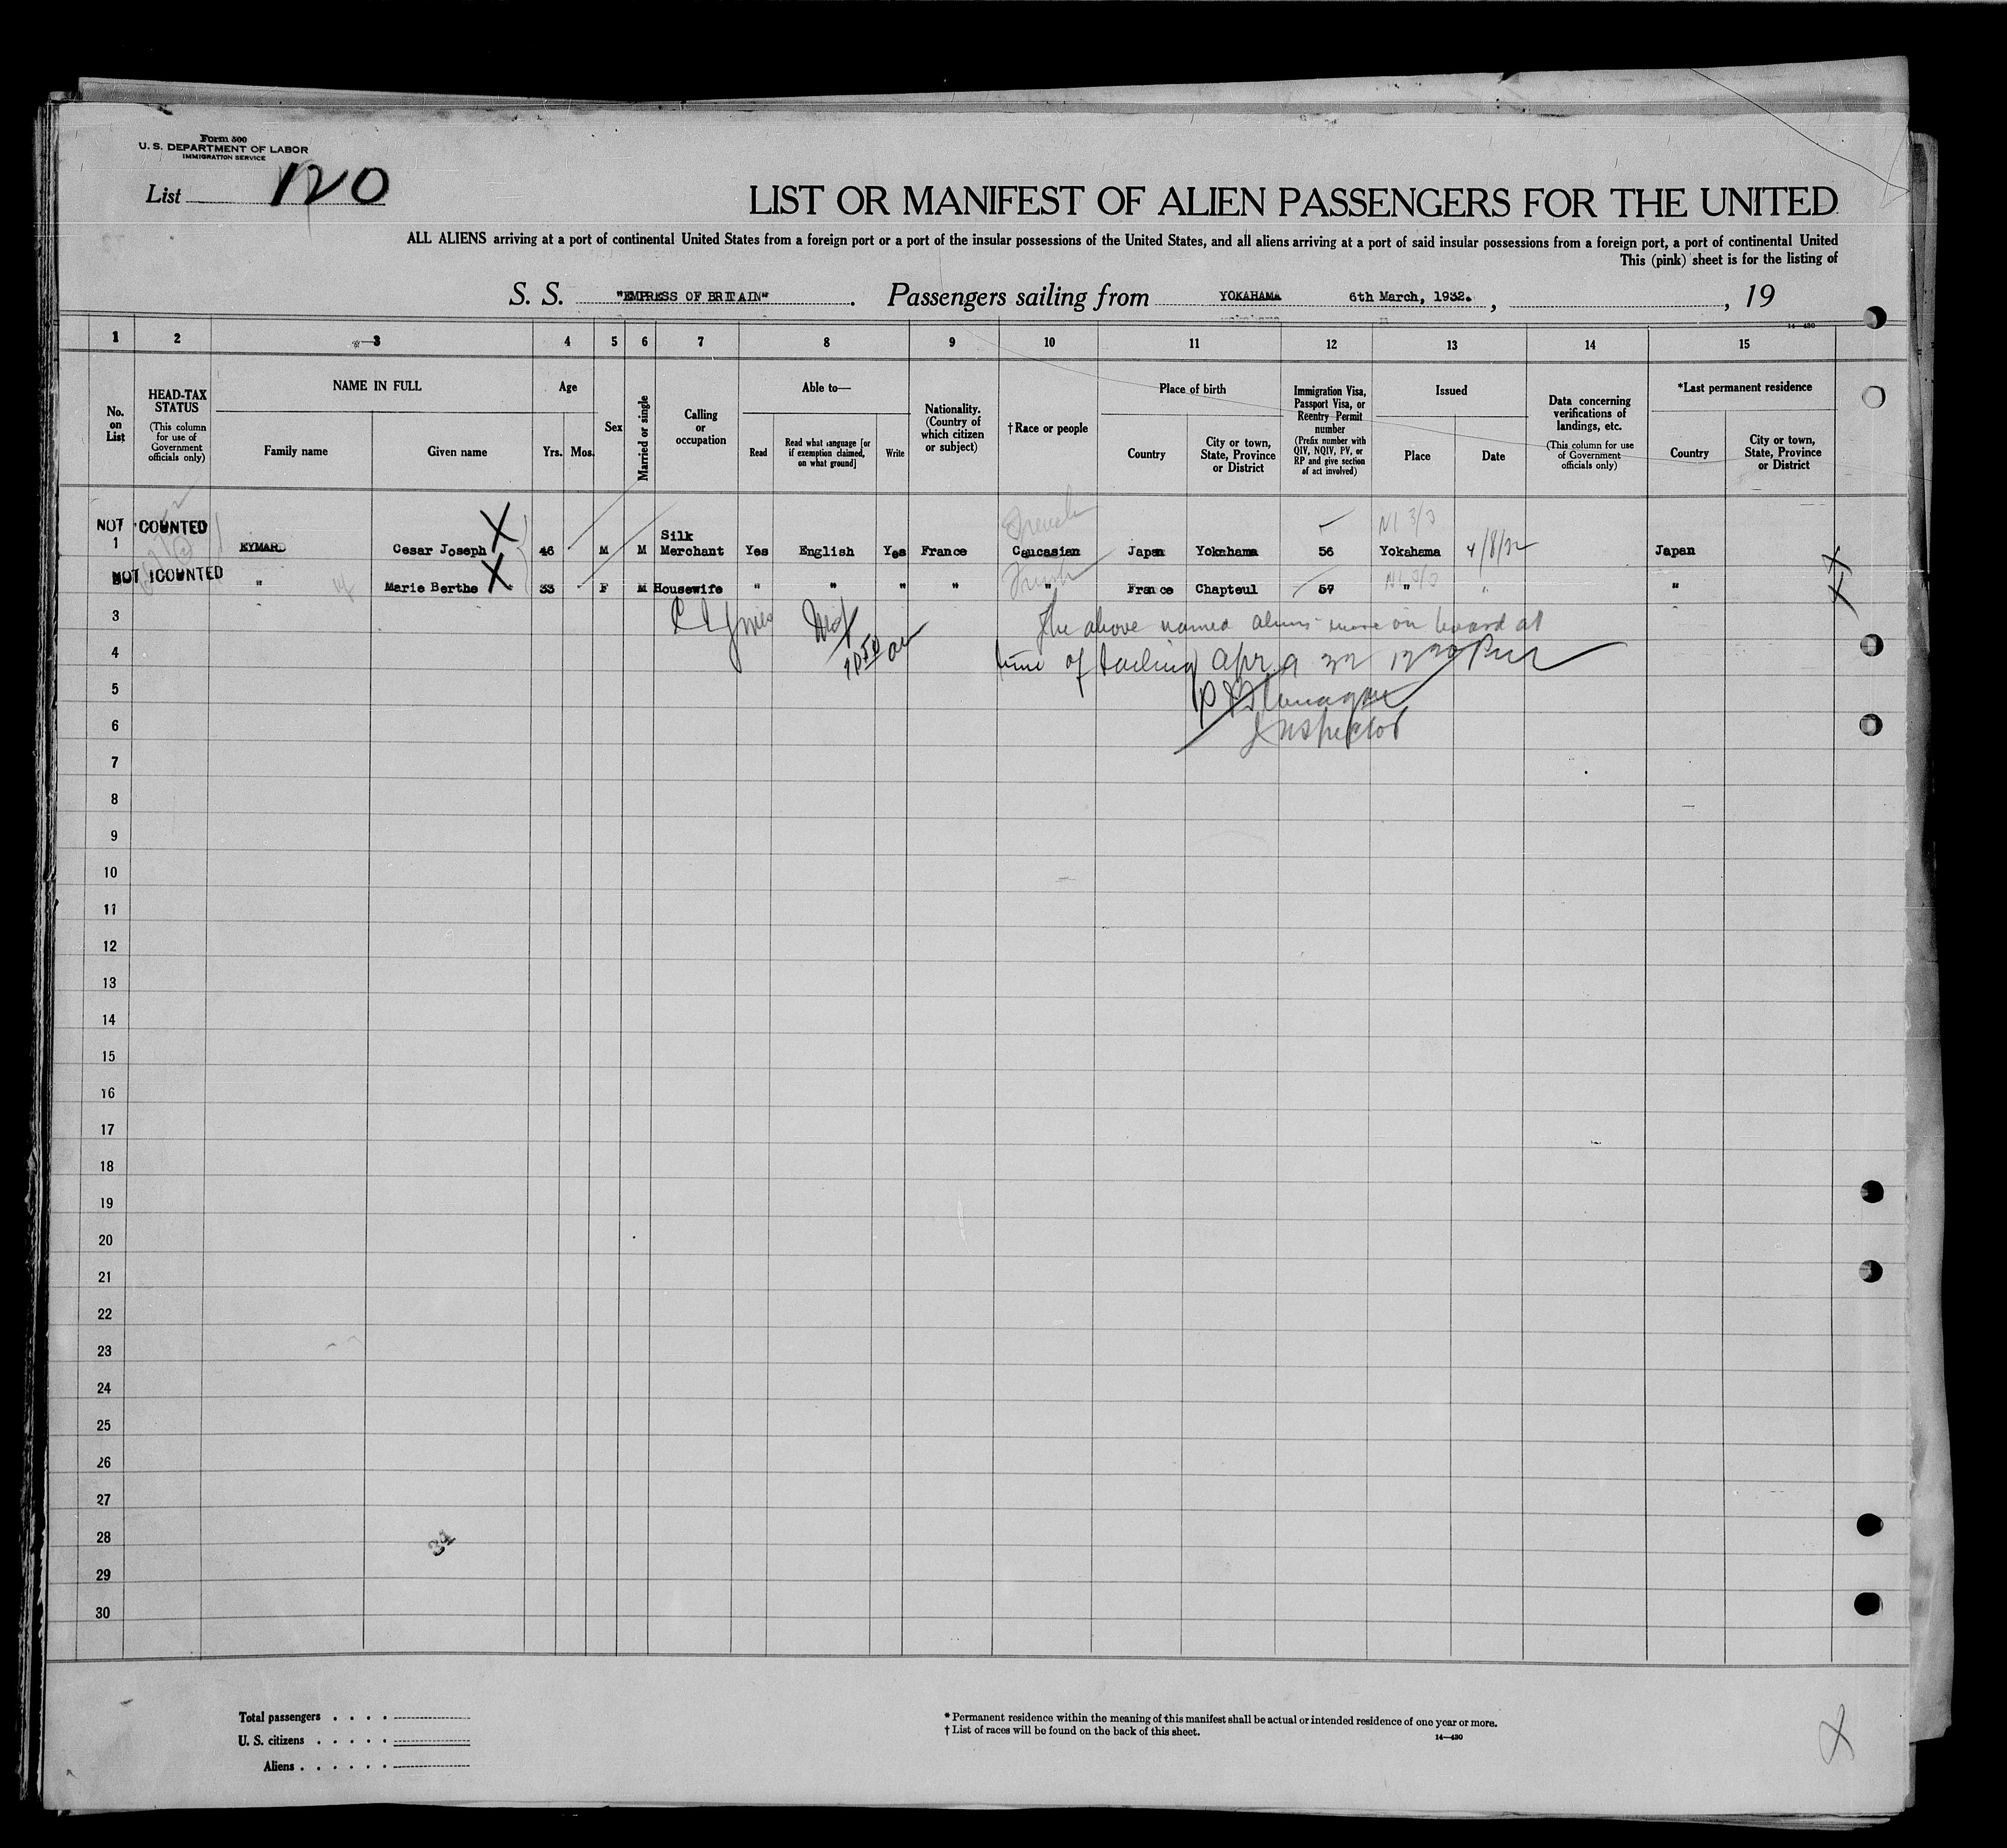 Form 500
U. S. DEPARTMENT OF LABOR
IMMIGRATION SERVICE
List 120
LIST OR MANIFEST OF ALIEN PASSENGERS FOR THE UNITED
ALL ALIENS arriving at a port of continental United States from a foreign port or a port of the insular possessions of the United States, and all aliens arriving at a port of said insular possessions from a foreign port, a port of continental United
This (pink) sheet is for the listing of
S. S. "EMPRESS OF BRITAIN". Passengers sailing from YOKAHAMA 6th March, 1932. , , 19
14—430
1 2 3 4 5 6 7 8 9 10 11 12 13 14 15
No. on List
HEAD-TAX STATUS (This column for use of Government officials only)
NAME IN FULL
Family name
Given name
Age
Yrs. Mos.
Sex
Married or single
Calling or occupation
Able to—
Read
Read what language [or if exemption claimed, on what ground]
Write
Nationality. (Country of which citizen or subject)
†Race or people
Place of birth
Country
City or town, State, Province or District
Immigration Visa, Passport Visa, or Reentry Permit number (Prefix number with QIV, NQIV, PV, or RP and give section of act involved)
Issued
Place
Date
Data concerning verifications of landings, etc. (This column for use of Government officials only)
*Last permanent residence
Country
City or town, State, Province or District
NOT COUNTED
French N1 3/3
1 EYMARD Cesar Joseph X 46 M M Silk Merchant Yes English Yes France Caucasian Japan Yokahama 56 Yokahama 4/8/32 Japan X
NOT COUNTED
French N1 3/3
" Marie Berthe X 33 F M Housewife " " " " " France Chapteul 57 " " " X
3 The above named aliens were on board at
4 10 50 am time of sailing Apr 9 32 12 30 Pm
5
6 Inspector
7
8
9
10
11
12
13
14
15
16
17
18
19
20
21
22
23
24
25
26
27
28 34
29
30
Total passengers . . . .
U. S. citizens . . . . .
Aliens . . . . . .
* Permanent residence within the meaning of this manifest shall be actual or intended residence of one year or more.
† List of races will be found on the back of this sheet.
14—430
X